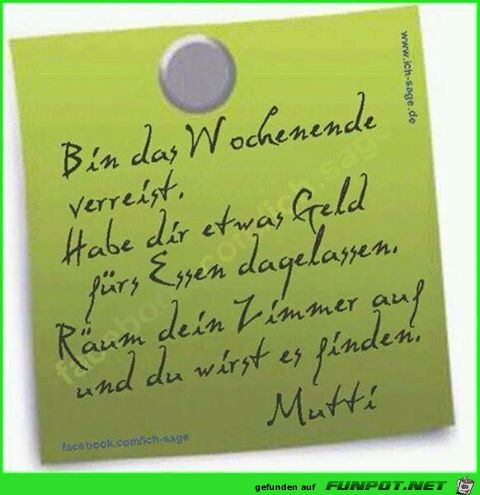 www.ich-sage.de
Bin das Wochenende
verreist.
Habe dir etwas Geld
fürs Essen dagelassen.
Räum dein Zimmer auf
und du wirst es finden.
Mutti
facebook.com/ich-sage
facebook.com/ich-sage
gefunden auf FUNPOT.NET